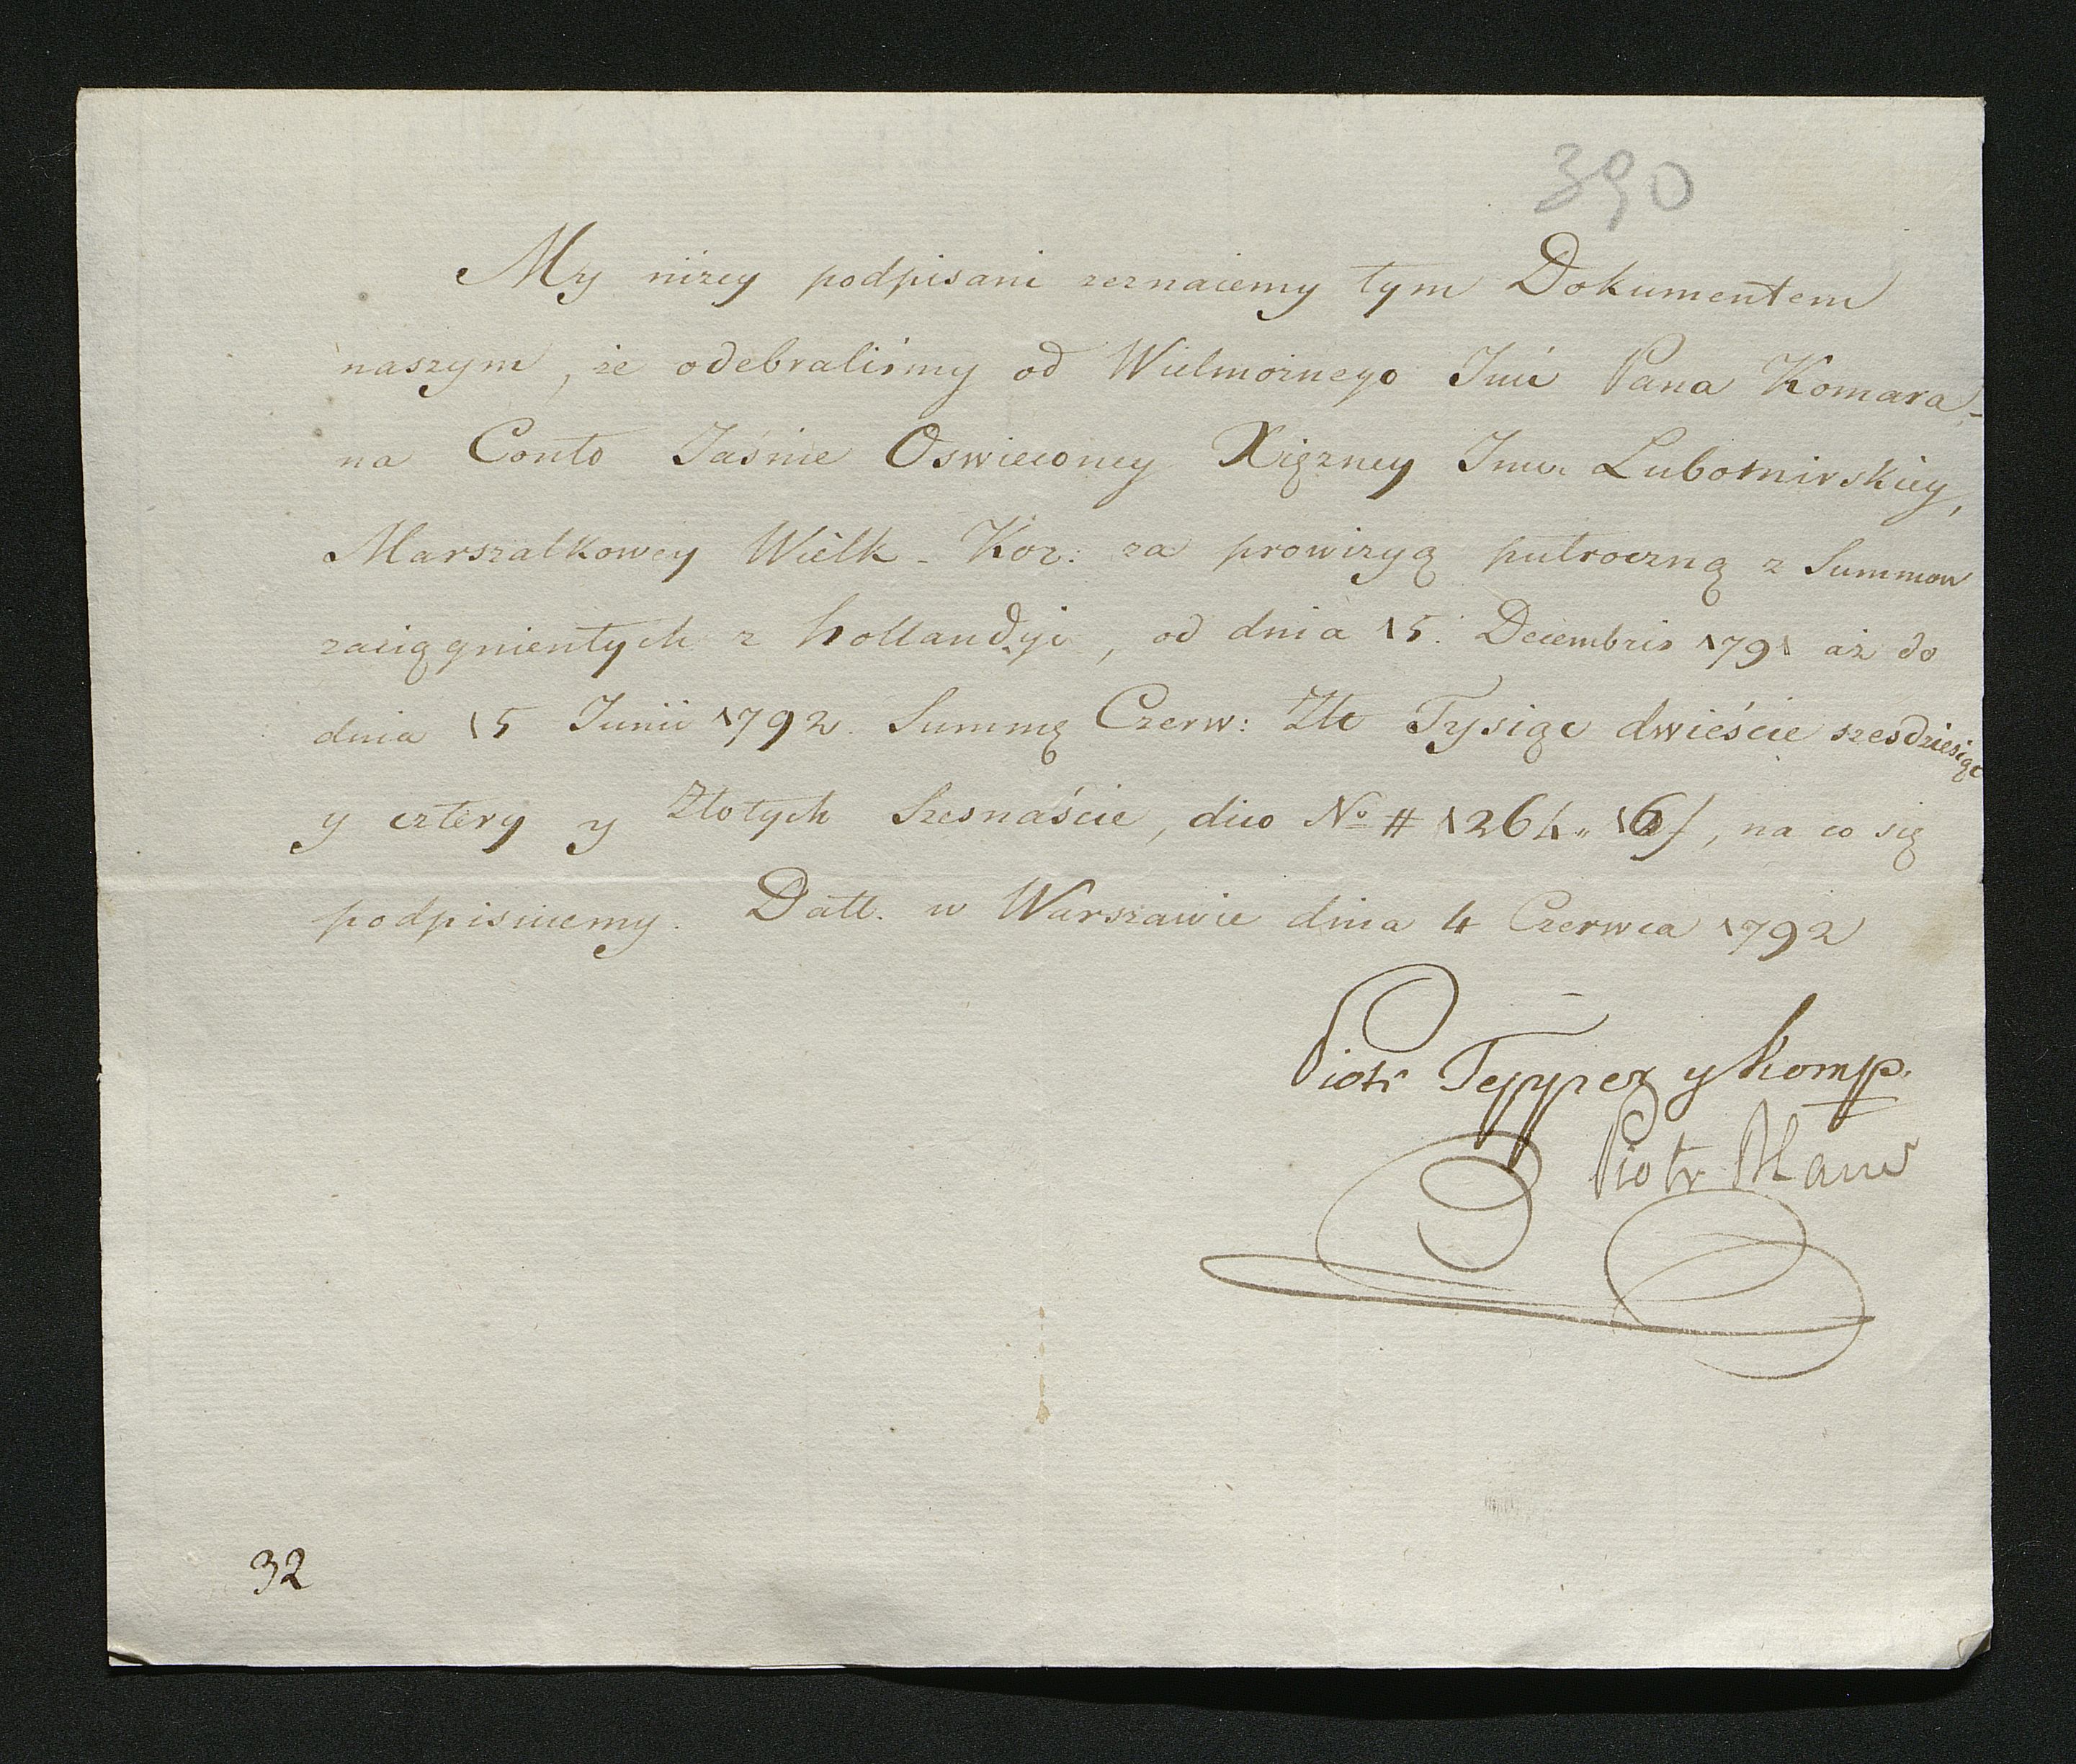 390
My niżey podpisani zeznaiemy tym Dokumentem
naszym, że odebraliśmy od Wielmożnego Imć Pana Komara,
na Conto Jaśnie Oswieconey Xiężney Imci Lubomirskiey,
Marszałkowey Wielk - Kor: za prowizyą pułroczną z Summow
zaciągnientych z hollandyi, od dnia 15. Decembris 1791 aż do
dnia 15 Junii 1792. Summę Czerw: Złt Tysiąc dwieście szesdziesiąt
y cztery y Złotych Szesnaście, dico No # 1264 „ 16 /, na co się
podpisuiemy. Datt. w Warszawie dnia 4 Czerwca 1792
Piotr Tepper y komp.
Piotr
32